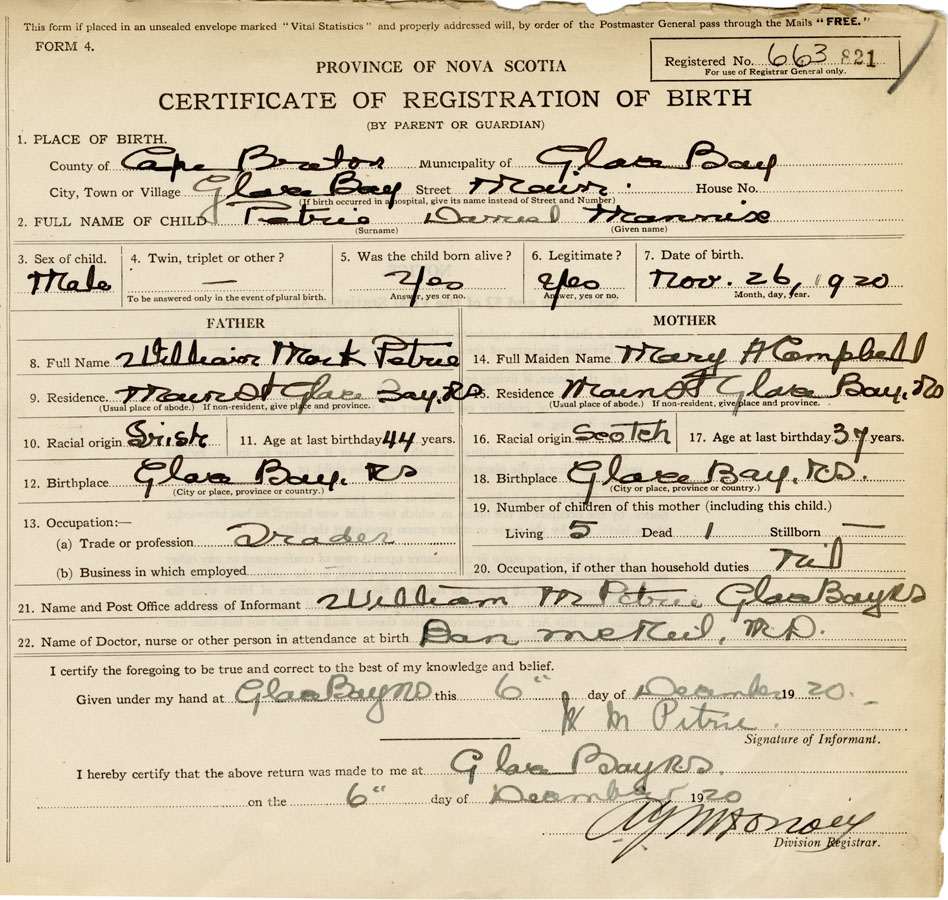 This form if placed in an unsealed envelope marked "Vital Statistics" and properly addressed will, by order of the Postmaster General pass through the Mails "FREE."
FORM 4.
Registered No. 663 821
For use of Registrar General only.
PROVINCE OF NOVA SCOTIA
CERTIFICATE OF REGISTRATION OF BIRTH
(BY PARENT OR GUARDIAN)
1. PLACE OF BIRTH.
County of Cape Breton Municipality of Glace Bay
City, Town or Village Glace Bay Street Main House No.
(If birth occurred in a hospital, give its name instead of Street and Number)
2. FULL NAME OF CHILD Petrie Daniel Mannix
(Surname) (Given name)
3. Sex of child. 4. Twin, triplet or other? 5. Was the child born alive? 6. Legitimate? 7. Date of birth.
Male — Yes Yes Nov. 26, 1920
To be answered only in the event of plural birth. Answer, yes or no. Answer, yes or no. Month, day, year.
FATHER
8. Full Name William Mark Petrie
9. Residence Main St Glace Bay, NS
(Usual place of abode.) If non-resident, give place and province.
10. Racial origin Irish 11. Age at last birthday 44 years.
12. Birthplace Glace Bay, NS
(City or place, province or country.)
13. Occupation:—
(a) Trade or profession Trader
(b) Business in which employed —
MOTHER
14. Full Maiden Name Mary A Campbell
15. Residence Main St Glace Bay, NS
(Usual place of abode.) If non-resident, give place and province.
16. Racial origin Scotch 17. Age at last birthday 37 years.
18. Birthplace Glace Bay, NS.
(City or place, province or country.)
19. Number of children of this mother (including this child.)
Living 5 Dead 1 Stillborn —
20. Occupation, if other than household duties Nil
21. Name and Post Office address of Informant William M Petrie Glace Bay NS
22. Name of Doctor, nurse or other person in attendance at birth Dan McNeil, M.D.
I certify the foregoing to be true and correct to the best of my knowledge and belief.
Given under my hand at Glace Bay NS this 6" day of December 1920.
W M Petrie.
Signature of Informant.
I hereby certify that the above return was made to me at Glace Bay NS.
on the 6" day of December 1920
Division Registrar.